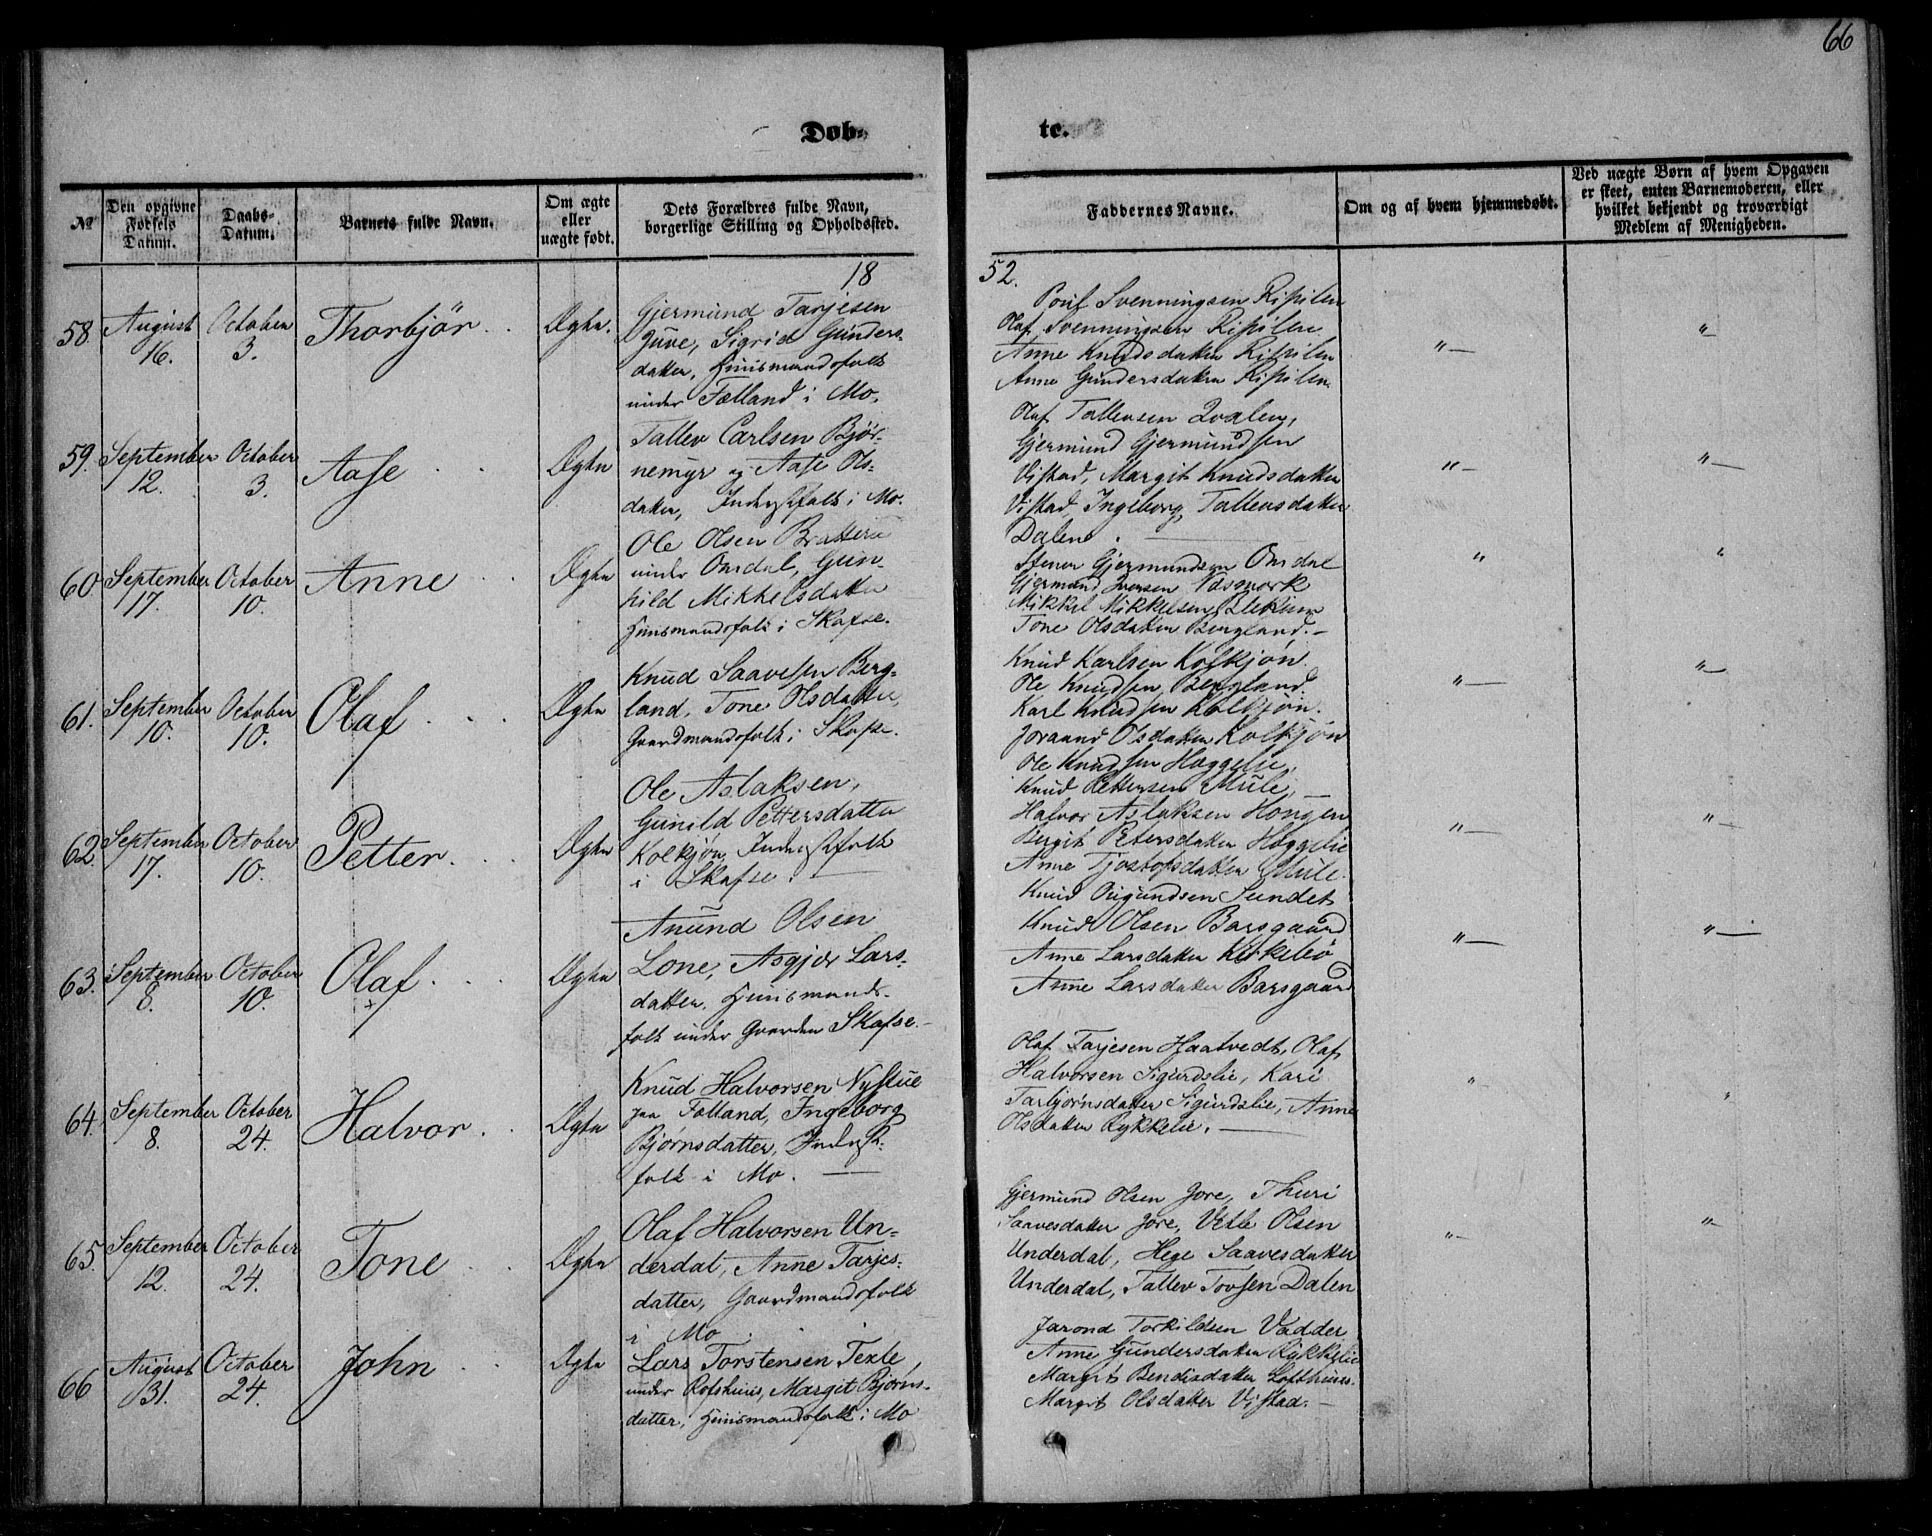 66
Døb- te.
No
Den opgivne Fødsels Datum.
Daabs-Datum.
Barnets fulde Navn.
Om ægte eller uægte født.
Dets Forældres fulde Navn, borgerlige Stilling og Opholdssted.
Faddernes Navne.
Om og af hvem hjemmedøbt.
Ved uægte Børn af hvem Opgaven er skeet, enten Barnemoderen, eller hvilket bekjendt og troværdigt Medlem af Menigheden.
18 52.
58. August 16. October 3. Thorbjør. Ægte.
Gjermund Tarjesen
Juve, Sigrid Gunders-
datter, Huusmandsfolk
under Fælland i Mo.
Svenningsen Ripilen
Olaf Svenningsen Ripilen
Anne Knudsdatter Ripilen
Anne Gundersdatter Ripilen
"— "—
59. September 12. October 3. Aase Ægte
Tallev Carlsen Bjør-
nemyr og Aase Ols-
datter, Inderstfolk i Mo.
Olaf Tallevsen
Gjermund Gjermundsen
Vistad, Margit Knudsdatter
Vistad, Ingeborg Tallevsdatter
Dalen.
"— "—
60 September 17. October 10. Anne Ægte
Ole Olsen
under Omdal, Gun-
hild Mikkelsdatter
Huusmandsfolk i Skafse.
Stener Gjermundsen Omdal
Gjermund Iversen
Mikkel Mikkelsen
Tone Olsdatter Bergland.—
" "
61. September 10. October 10. Olaf Ægte
Knud Saavesen Berg-
land, Tone Olsdatter,
Gaardmandsfolk i Skafse.
Knud Karlsen Kolkjøn.
Ole Knudsen Bergland.
Karl Knudsen Kolkjøn.
Joraand Olsdatter Kolkjøn
"— "—
62. September 17. October 10. Petter. Ægte
Ole Aslaksen,
Gunild Pettersdatter
Kolkjøn, Inderstfolk
i Skafse.
Ole Knudsen Høggelie,
Knud Pettersen Mule,
Halvor Aslaksen Hongen
Bergit Petersdatter Høggelie
Anne Tjostofsdatter Mule.
"— "—
63. September 8. October 10. Olaf Ægte
Anund Olsen
Lone, Asgjer Lars-
datter, Huusmands-
folk under Gaarden Skafse.—
Knud Sundet
Knud Olsen Barsgaard
Anne Larsdatter Kirkebø
Anne Larsdatter Barsgaard
"— "—
64. September 8. October 24. Halvor. Ægte
Knud Halvorsen Nystue
paa Folland, Ingeborg
Bjørnsdatter, Inderst-
folk i Mo.
Olaf Tarjesen Haatvedt, Olaf
Halvorsen Sigurdslie, Kari
Tarbjørnsdatter Sigurdslie, Anne
Olsdatter Rykkelie.—
" "
65. September 12. October 24. Tone Ægte
Olaf Halvorsen Un-
derdal, Anne Tarjes-
datter, Gaardmandsfolk
i Mo
Gjermund Olsen Jore, Thuri
Saavesdatter Jore, Vetle Olsen
Underdal, Hege Saavesdatter
Underdal, Tallev Tovsen Dalen
"— "—
66 August 31. October 24. John Ægte
Lars Torstensen Texle,
under Rofshuus, Margit Bjørns-
datter, Huusmandsfolk i Mo
Jarond Torkildsen Vadder
Anne Gundersdatter Rykkelie
Margit Bendixdatter Lofthuus
Margit Olsdatter Vistad.—